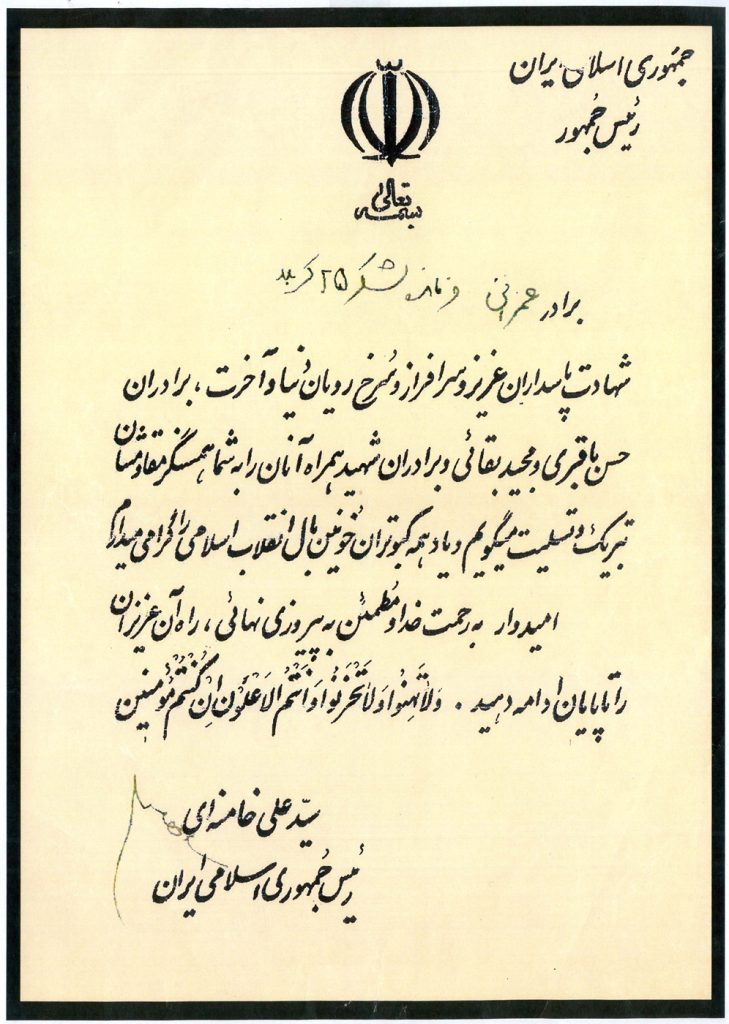 جمهوری اسلامی ایران
رئیس جمهور
بسمه تعالی
برادر عمرانی فرمانده لشکر ۲۵ کربلا
شهادت پاسداران عزیز و سرافراز و سُرخ رویان دُنیا و آخرت ، برادران
حسن باقری و مجید بقائی و برادران شهید همراه آنان را به شما همسنگر مقاومشان
تبریک و تسلیت میگویم و یاد همه کبوتران خُونین بال انقلاب اسلامی را گرامی میدارم
امیدوار به رحمت خدا و مُطمئن به پیروزی نهائی ، راه آن عزیزان
را تا پایان ادامه دهید . وَلاتَهِنُوا وَلاتَحْزَنُوا وَاَنْتُمُ الاَعْلَوْنَ اِنْ كُنْتُمْ مُؤْمِنین
سیّد علی خامنه‌ای
رئیس جُمهوری اسلامی ایران